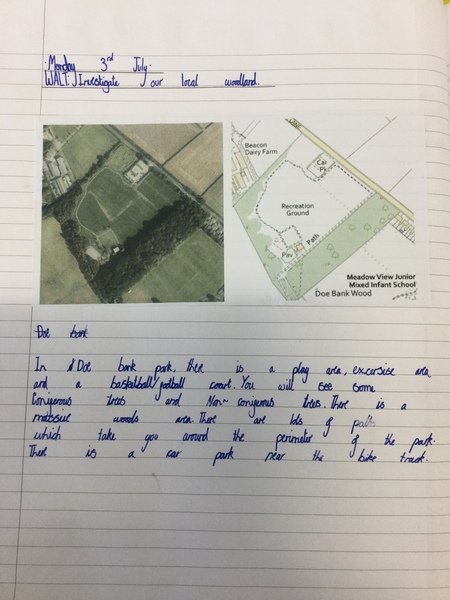 Monday 3rd July.
WALT: Investigate our local woodland.
Beacon
Dairy Farm
Car
Pk
Recreation
Ground
Path
Pav
Meadow View Junior
Mixed Infant School
Doe Bank Wood
Doe bank
In Doe bank park, ther is a play area, excersise area
and a basketball/football court. You will see some
Conigerous trees and Non- conigerous trees. There is a
massive woods area. There are lots of paths
which take you around the perimeter of the park.
There is a car park near the bike track.